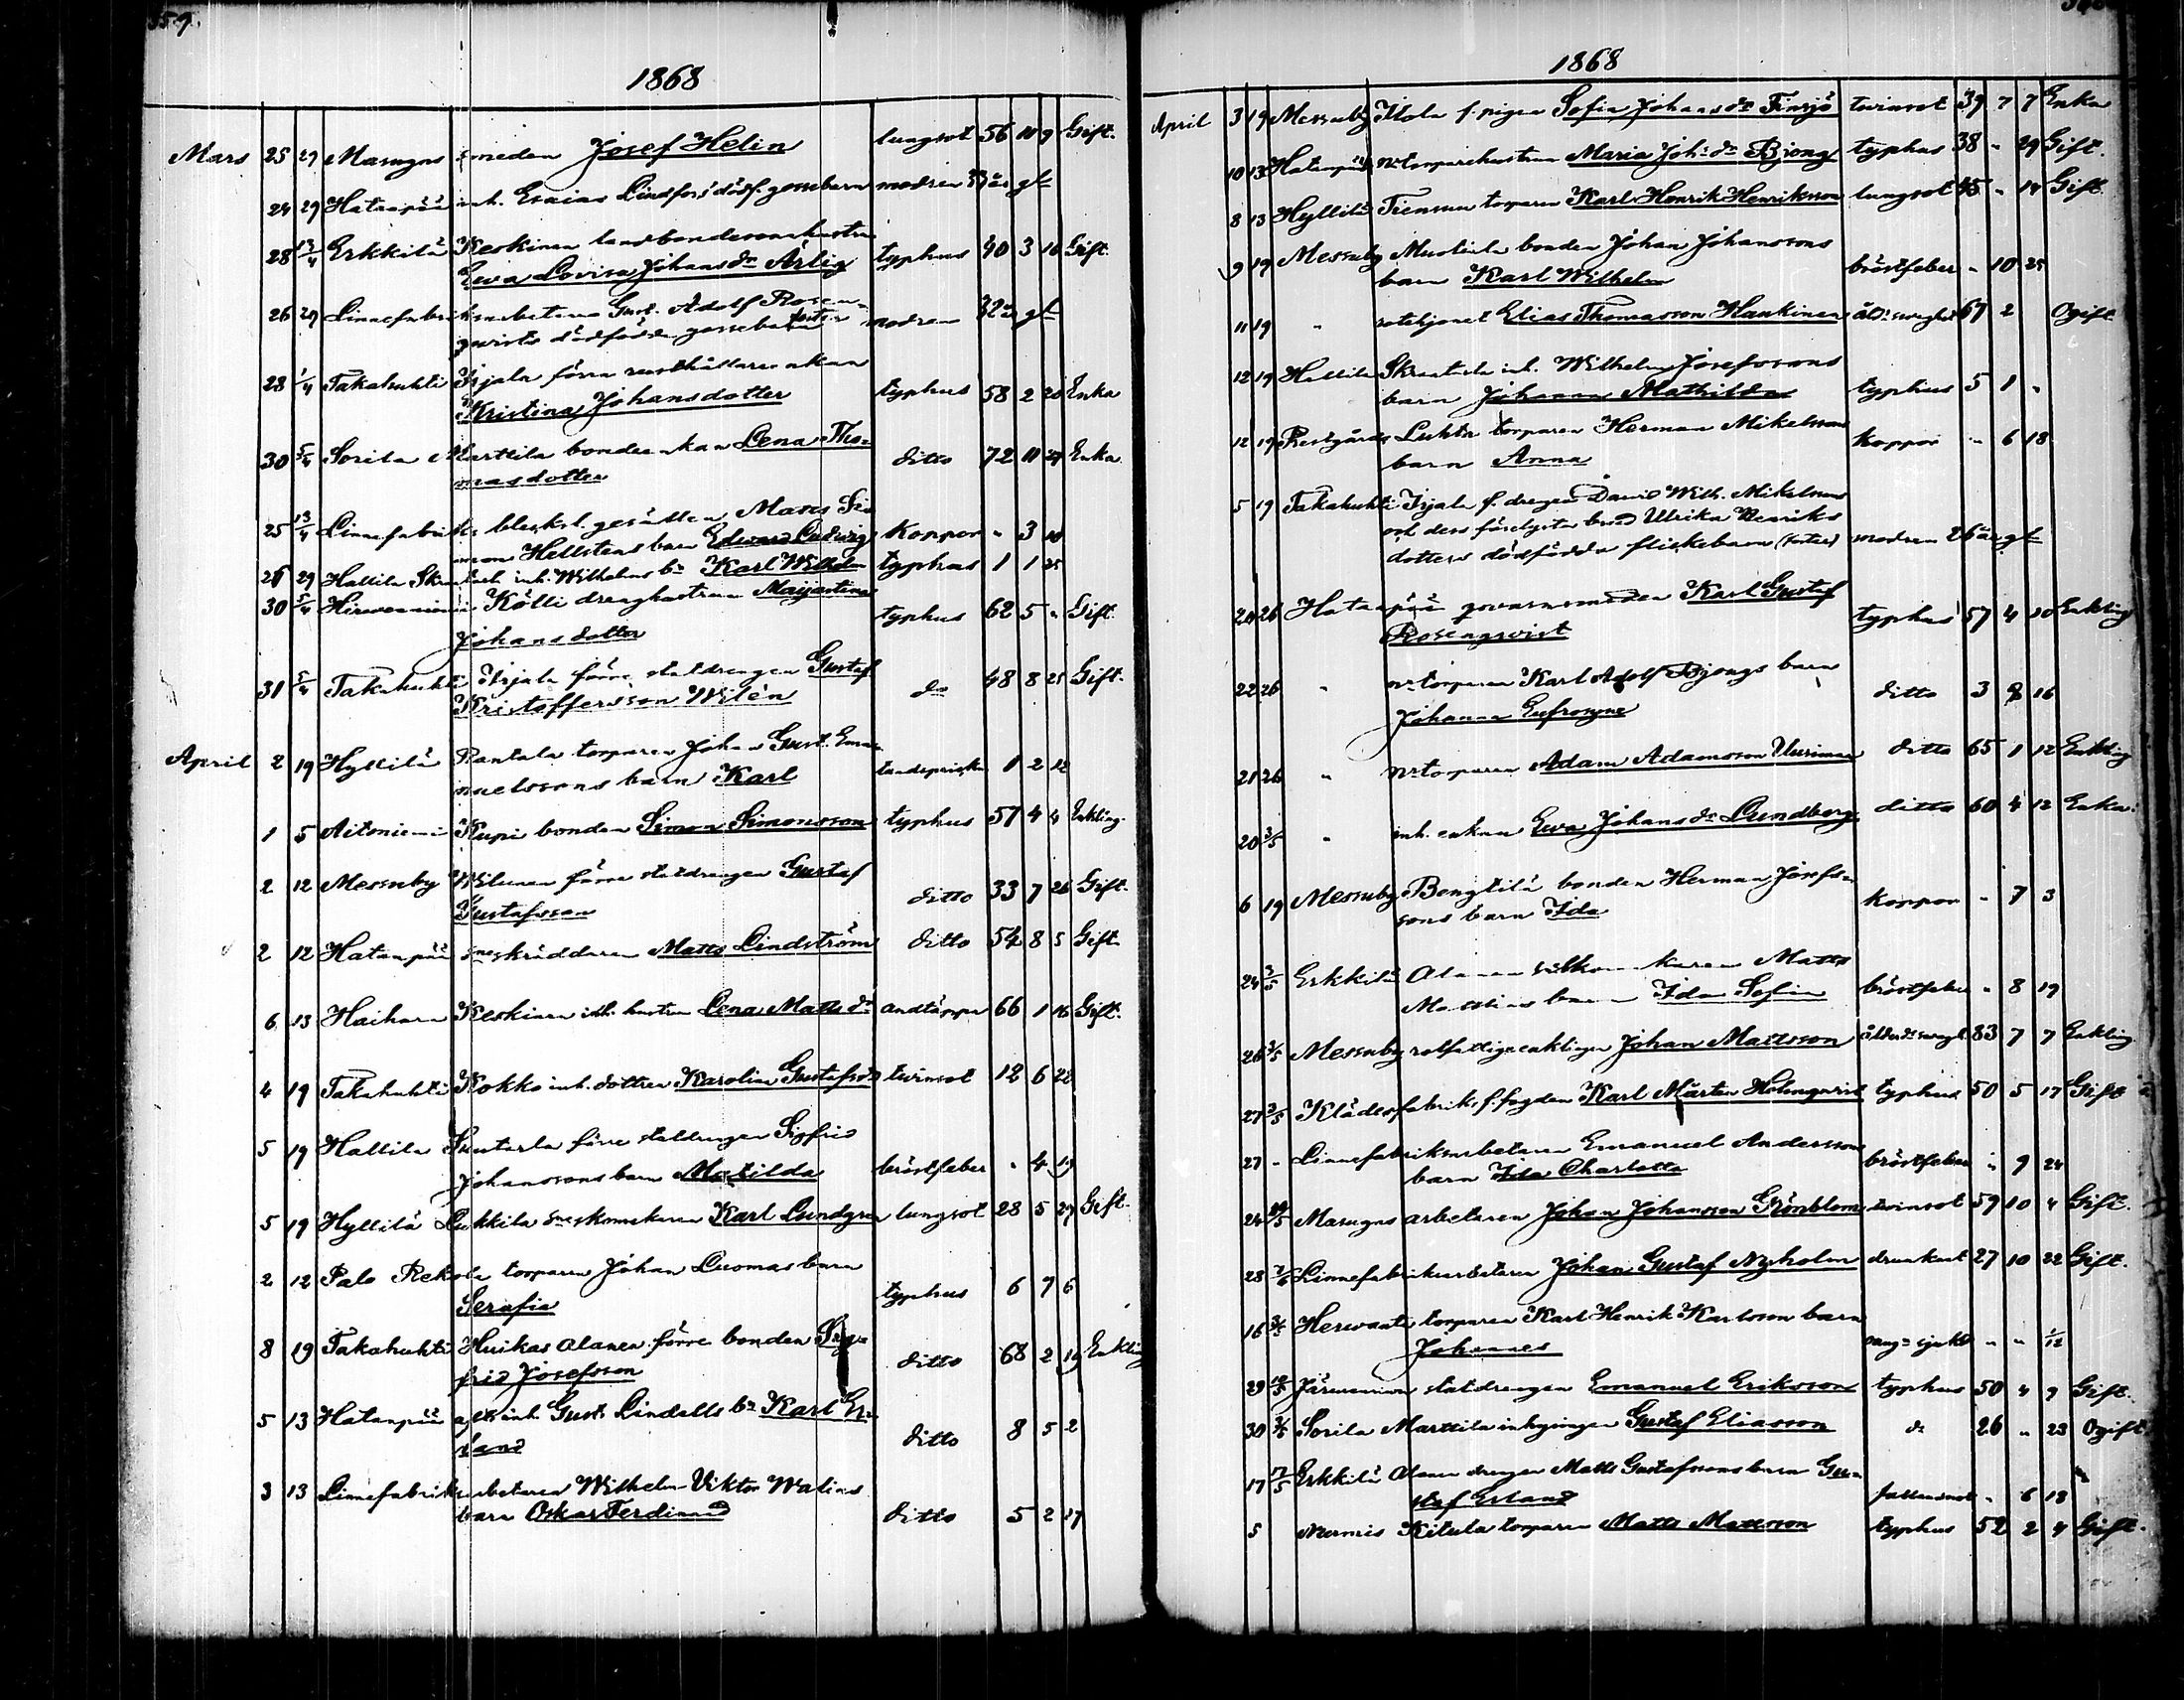 359.
1868
Mars 25 29 Masugns smeden Josef Helin lungsot 56 10 9 Gift.
24 29 Hatanpää inh. Esaias Lindfors dödf. gossebarn modren 33 år gl
28 12/4 Erkkilä Keskinen landbondesonhustru
Ewa Lovisa Johansdr Ärlig typhus 40 3 16 Gift.
26 29 Linnefabriksarbetaren Gust. Adolf Rosen-
qvists dödfödda gossebarn modren 32 år gl
28 1/4 Takahuhti Irjala förra rusthållareenkan
Kristina Johansdotter typhus 58 2 20 Enka
30 5/4 Sorila Marttila bondeenkan Lena Tho-
masdotter ditto 72 11 29 Enka
25 13/4 Linnefabriks gesällen Matts Si-
mon Hellstens barn Edward Ludwig Koppor " 3 10
29 Hallila inh. Wilhelms bn Karl Wilhelm typhus 1 1 25
30 5/4 Kölli drenghustrun Majastina
Johansdotter typhus 62 5 " Gift.
31 5/4 Takahuhti Irjala förre statdrengen Gustaf
Kristoffersson Wilén do 48 8 25 Gift.
April 2 19 Hyllilä Rantala torparen Johan Gust. Ema-
nuelssons barn Karl 1 2 12
1 5 Aitoniemi Rupi bonden Simon Simonsson typhus 57 4 4 Enkling.
2 12 Messuby Wilunen förre statdrengen Gustaf
Gustafsson ditto 33 7 26 Gift.
2 12 Hatanpää skräddaren Matts Lindström ditto 54 8 5 Gift.
6 13 Haihara Keskinen inh. hustru Lena Mattsdr andtäppa 66 1 16 Gift.
4 19 Takahuhti Kokko inh. dottren Karolina Gustafsdr tvinsot 12 6 22
5 19 Hallila förre statdrengen Sigfrid
Johanssons barn Matilda bröstfeber " 4 19
5 19 Hyllilä Lukkila Karl Lundgren lungsot 28 5 29 Gift.
2 12 Palo Rekola torparen Johan Luomas barn
Serafia typhus 6 7 6
8 19 Takahuhti Huikas Alanen förre bonden Sig-
frid Josefsson ditto 68 2 19 Enkling
5 13 Hatanpää inh. Gust. Lindells bn Karl Er-
land ditto 8 5 2
3 13 Linnefabriksarbetaren Wilhelm Viktor Walins
barn Oskar Ferdinand ditto 5 2 27
1868
April 3 19 Messuby Mola f. pigan Sofia Johansdr Finsjö tvinsot 39 7 7 Enka
10 13 Hatanpää torparehustrun Maria Johsdr Bjong typhus 38 " 29 Gift.
8 13 Hyllilä Tiensuu torparen Karl Henrik Henriksson lungsot 45 " 14 Gift.
9 19 Messuby Mustila bonden Johan Johanssons
barn Karl Wilhelm bröstfeber " 10 25
11 19 " rotehjonet Elias Thomasson Hankinen 67 2 Ogift
12 19 Hallila inh. Wilhelm Josefssons
barn Johanna Mathilda typhus 5 1 "
12 19 Prestgårds Luhta torparen Herman Mikelssons
barn Anna Koppor " 6 18
5 19 Takahuhti Irjala f. drengen David Wilh. Mikelssons
och dess förelysta brud Ulrika Henriks
dotters dödfödda flickebarn modren 26 år gl
24 26 Hatanpää Karl Gustaf
Rosenqvist typhus 57 4 20 Enkling
22 26 " torparen Karl Adolf Bjongs barn
Johanna Eufrosyne ditto 3 8 16
21 26 " torparen Adam Adamsson Uusimaa ditto 65 1 12 Enkling
20 3/5 " inh. enkan Ewa Johansdr Lundberg ditto 60 4 12 Enka.
6 19 Messuby Bengtilä bonden Herman Josefs-
sons barn Ida Koppor " 7 3
24 3/5 Erkkilä Alanen Matts
barn Ida Sofia bröstfeber " 8 19
26 3/5 Messuby rotfattige enklingen Johan Mattsson 83 7 7 Enkling
27 3/5 Klädesfabriks f. fogden Karl Mårten Holmqvist typhus 50 5 17 Gift
27 " Linnefabriksarbetaren Emanuel Andersson
barn Ida Charlotta bröstfeber " 9 24
24 Masugns arbetaren Johan Johansson Grönblom tvinsot 59 10 4 Gift.
28 Linnefabriksarbetaren Johan Gustaf Nyholm drunknat 27 10 22 Gift.
16 torparen Karl Henrik Karlsson barn
Johannes " " 1/12
29 statdrengen Emanuel Eriksson typhus 50 4 9 Gift.
30 Sorila Marttila inhysingen Gustaf Eliasson do 26 " 23 Ogift
17 17/5 Erkkilä Alanen drengen Matts Gustafssons barn Gus-
taf Erland " 6 18
5 Nurmis Kitula torparen Matts Mattsson typhus 52 2 4 Gift.